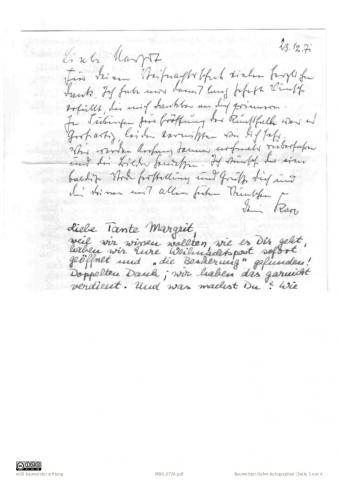 23.12.71
Liebe Margit
für Deinen Weihnachtsscheck vielen herzlichen
Dank. Ich habe mir damit lang gehegte Wünsche
erfüllt, die mich dankbar an Dich erinnern.
In Tübingen zur Eröffnung der Kunsthalle war es
großartig, leider vermissten wir Dich sehr.
Wir werden Anfang Januar nochmals
und die Bilder genießen. Ich wünsche Dir eine
baldige und grüße Dich und
die Deinen mit allen guten Wünschen
Dein
Liebe Tante Margrit,
weil wir wissen wollten, wie es Dir geht,
haben wir Eure Weihnachtspost sofort
geöffnet und „die Bescherung" gefunden!
Doppelten Dank; wir haben das garnicht
verdient. Und was machst Du? Wie
willi baumeister stiftung
Baumeister-Rehm Autographen | Seite 1 von 4